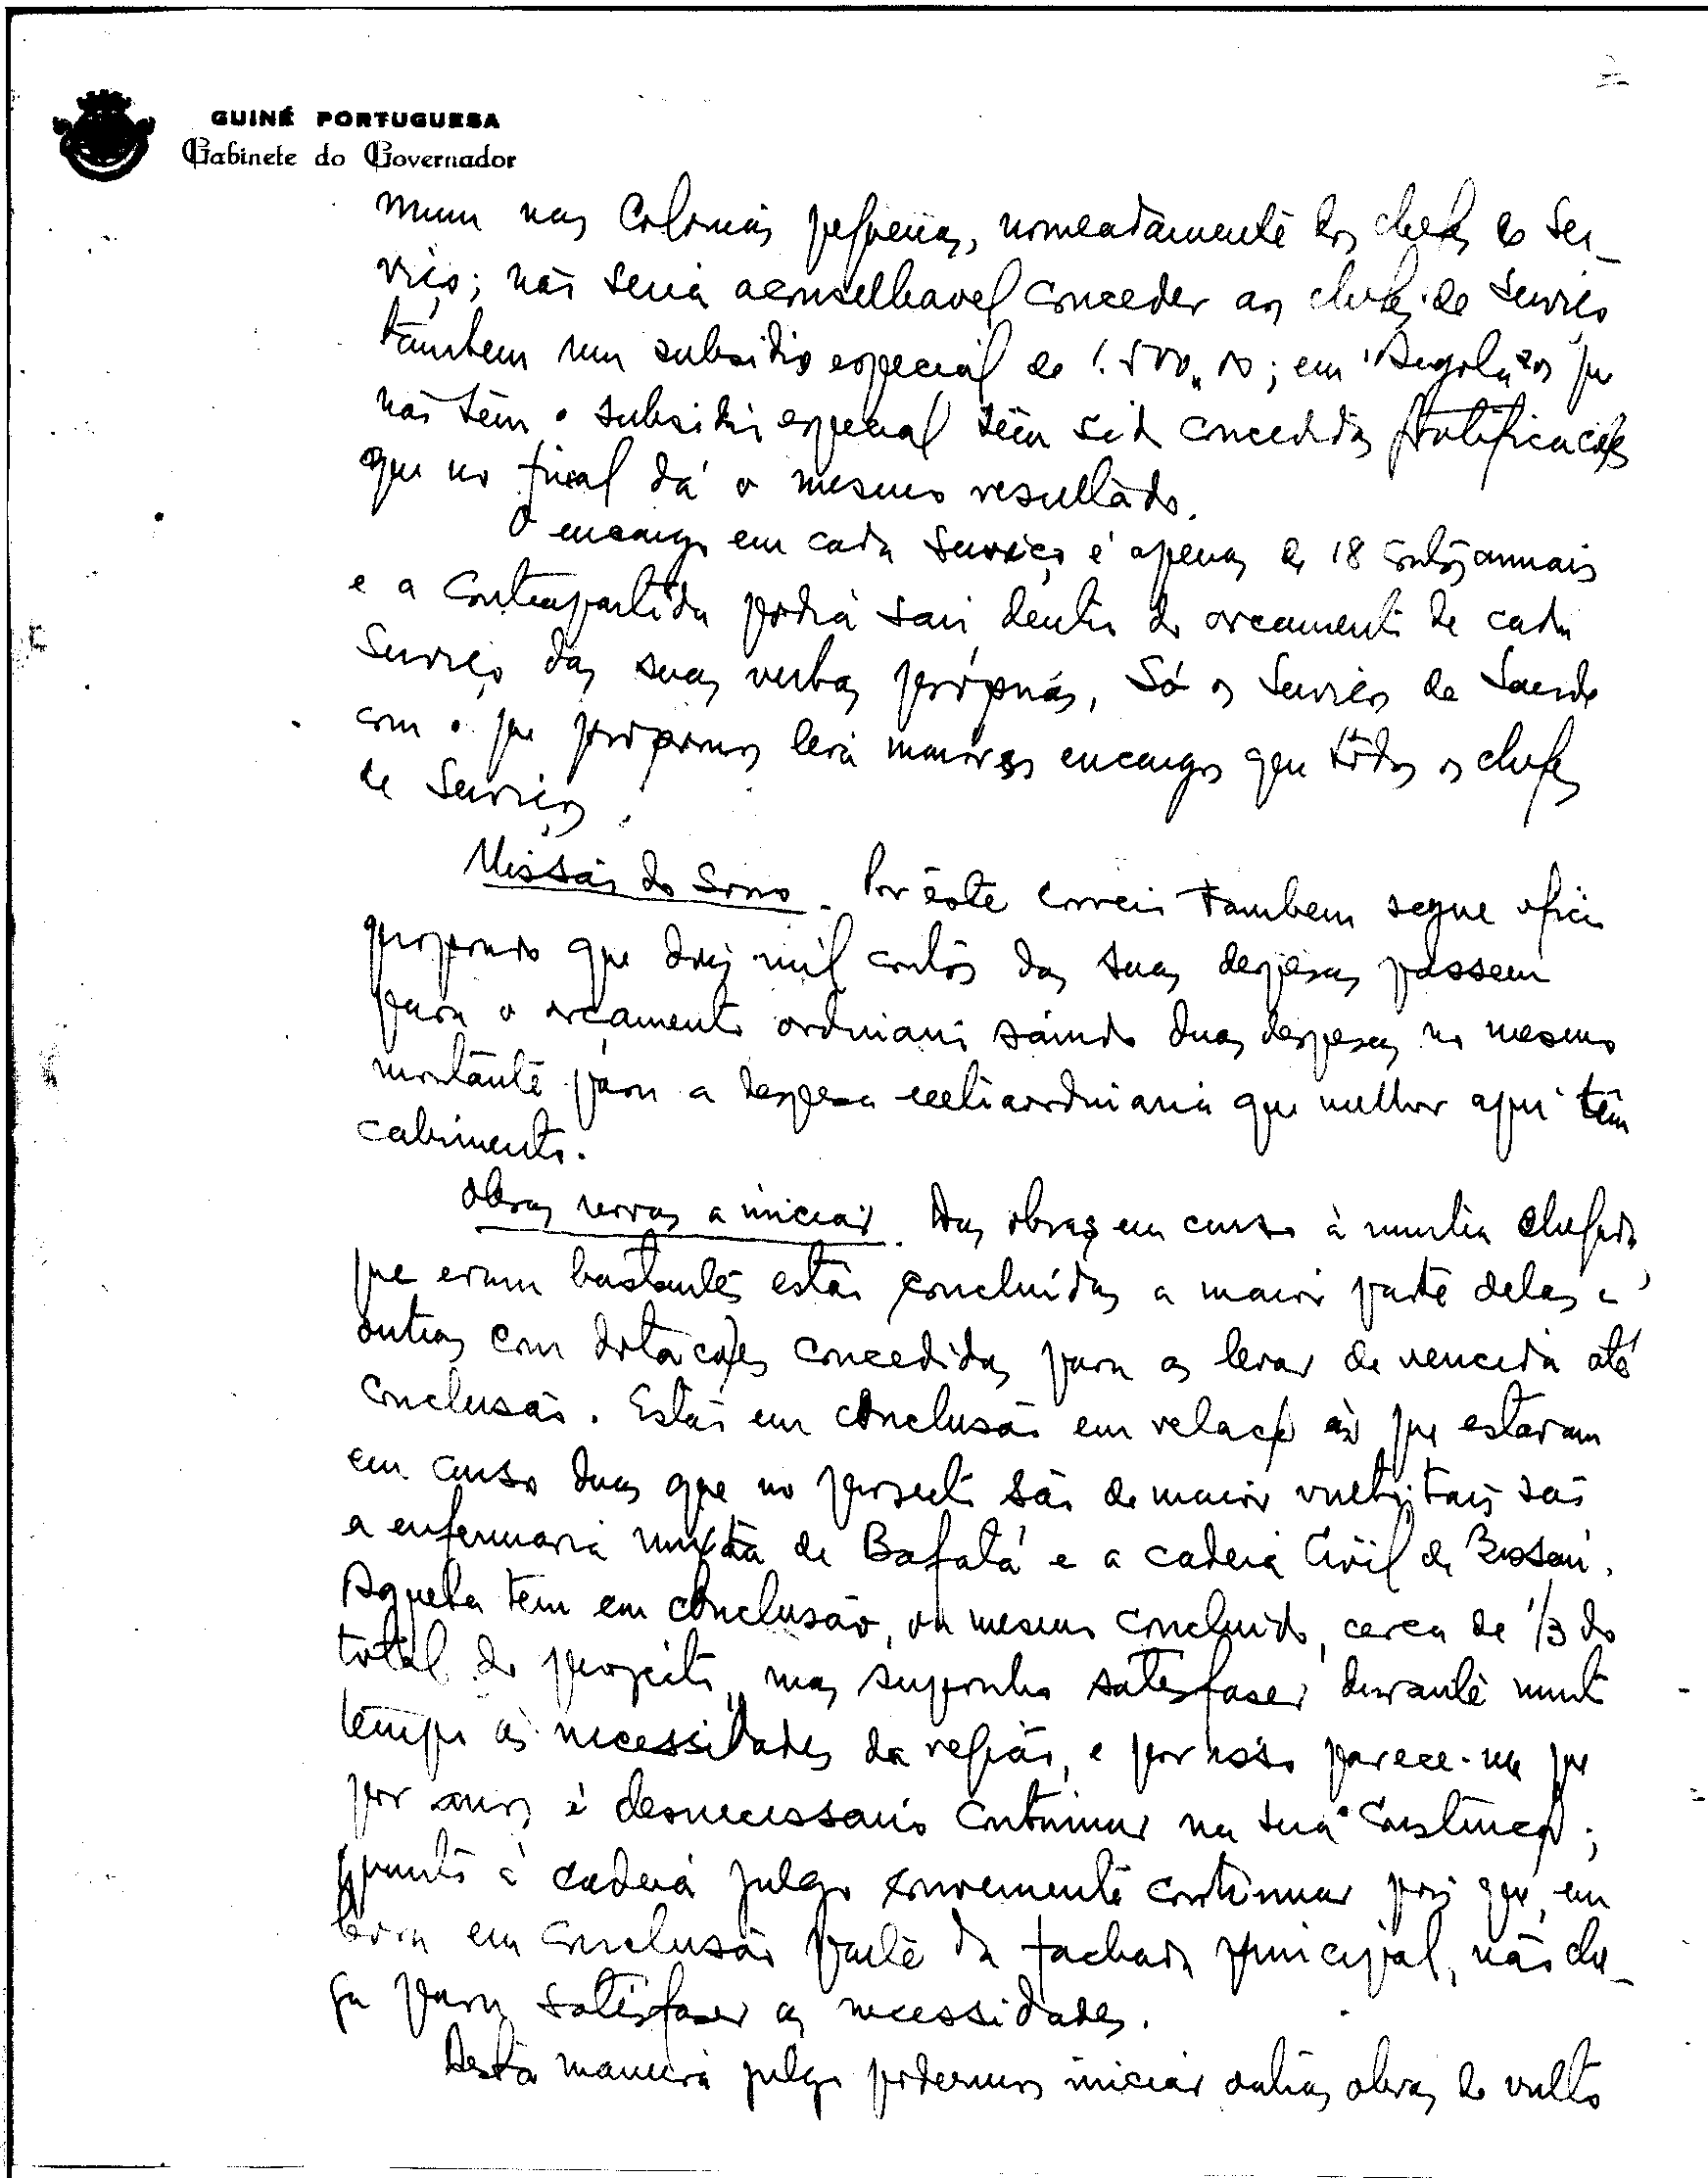 GUINÉ PORTUGUESA
Gabinete do Governador
mum nas Colonias pequenas, nomeadamente dos chefes de Ser-
viço; não seria aconselhavel conceder aos chefes de Serviço
tambem um subsidio especial de 1.500,00; em Angola aos que
não têm o subsidio especial têm sido concedidas gratificações
que no final dá o mesmo resultado.
O encargo em cada Serviço é apenas de 18 contos anuais
e a contrapartida podia sair dentro do orçamento de cada
Serviço das suas verbas próprias, Só os Serviços de Saude
com o que propomos terá maiores encargos que todos os chefes
de Serviços.
Missão do Sono. Por êste correio tambem segue oficio
propondo que dois mil contos das suas despesas passem
para o orçamento ordinario saindo duas despesas no mesmo
montante para a despesa extraordinaria que melhor aqui têm
cabimento.
Obras novas a iniciar. Das obras em curso à minha chegada,
que eram bastantes estão concluidas a maior parte delas e
outras com dotações concedidas para as levar de vencida até
conclusão. Estão em conclusão em relação às que estavam
em curso duas que no presente são de maior vulto; tais são
a enfermaria mixta de Bafatá e a cadeia Civil de Bissau.
Aquela tem em conclusão, ou mesmo concluido, cerca de 1/3 do
total do projecto, mas suponho satisfazer durante muito
tempo as necessidades da região, e por isso parece-me que
por anos é desnecessario continuar na sua construção;
quanto à cadeia julgo conveniente continuar pois que, em
bora em conclusão parte da fachada principal, não che-
ga para satisfazer as necessidades.
Desta maneira julgo podermos iniciar outras obras de vulto